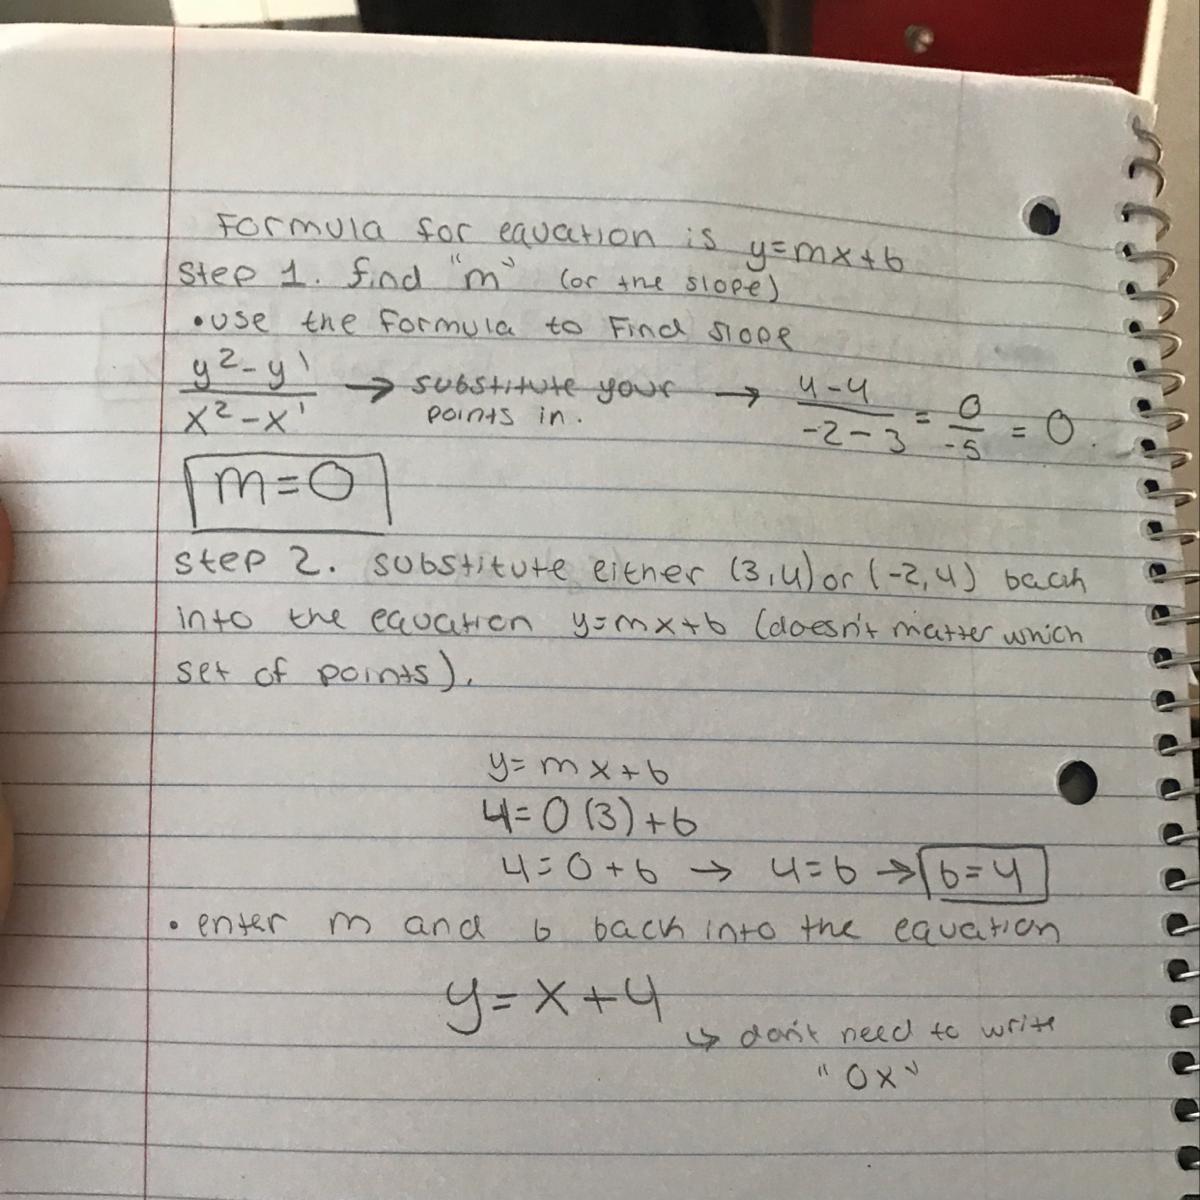 Formula for equation is y=mx+b
Step 1. find "m" (or the slope)
•use the formula to find slope
y²-y¹ / x²-x¹ → substitute your points in. → 4-4 / -2-3 = 0 / -5 = 0.
m=0
step 2. substitute either (3,4) or (-2,4) back
into the equation y=mx+b (doesn't matter which
set of points).
y=mx+b
4=0(3)+b
4=0+b → 4=b → b=4
• enter m and b back into the equation
y=x+4
↳ don't need to write
"0x"